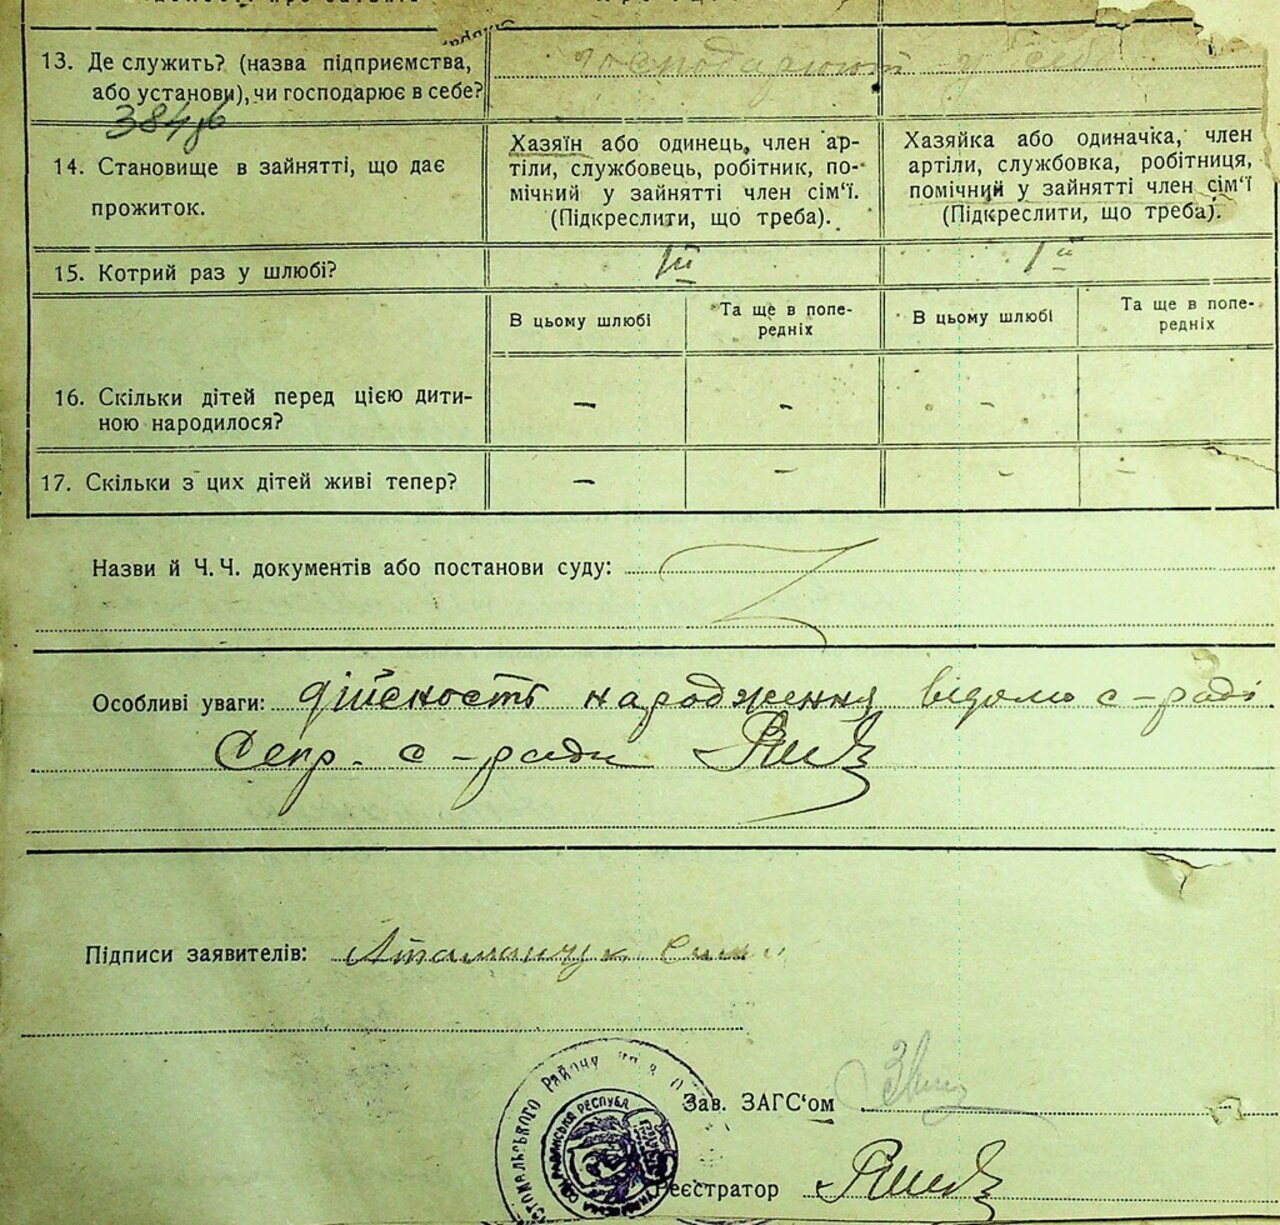 13. Де служить? (назва підприємства,
або установи), чи господарює в себе?
господарюють у себе
384/б
14. Становище в зайнятті, що дає
прожиток.
Хазяїн або одинець, член ар-
тіли, службовець, робітник, по-
мічний у зайнятті член сім‘ї.
(Підкреслити, що треба).
Хазяйка або одиначка, член
артіли, службовка, робітниця,
помічний у зайнятті член сім‘ї
(Підкреслити, що треба).
15. Котрий раз у шлюбі?
Iй
Iй
В цьому шлюбі
Та ще в попе-
редніх
В цьому шлюбі
Та ще в попе-
редніх
16. Скільки дітей перед цією дити-
ною народилося?
– – –
17. Скільки з цих дітей живі тепер?
– – – –
Назви й Ч. Ч. документів або постанови суду:
Особливі уваги: дійсность народження відомо с-раді
Секр. с-ради
Підписи заявителів: Атаманчук
Району
РАДЯНСЬКА РЕСПУБ
Зав. ЗАГС‘ом
Реєстратор